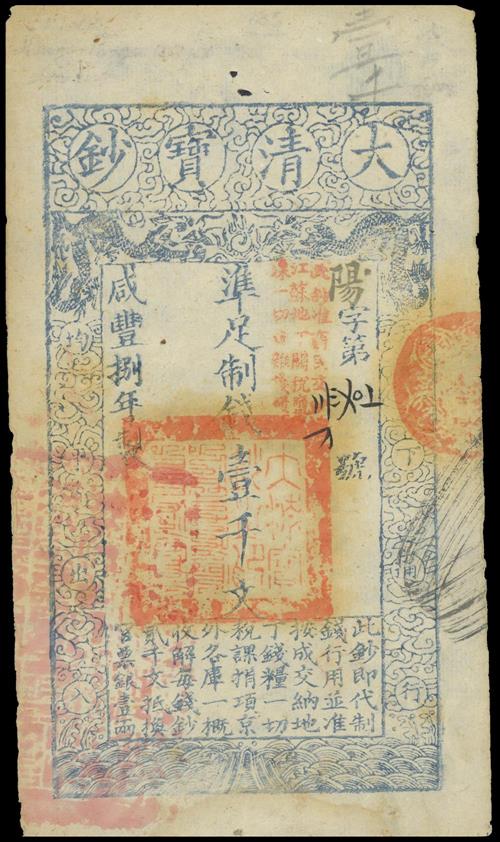 壹千
大清寶鈔
陽字第號
準足制錢壹千文
咸豐捌年製
下通行
均平出入
此鈔即代制
錢行用並准
按成交納地
丁錢糧一切
稅課捐項京
外各庫一概
收解每錢鈔
貳千文抵換
官票銀壹兩